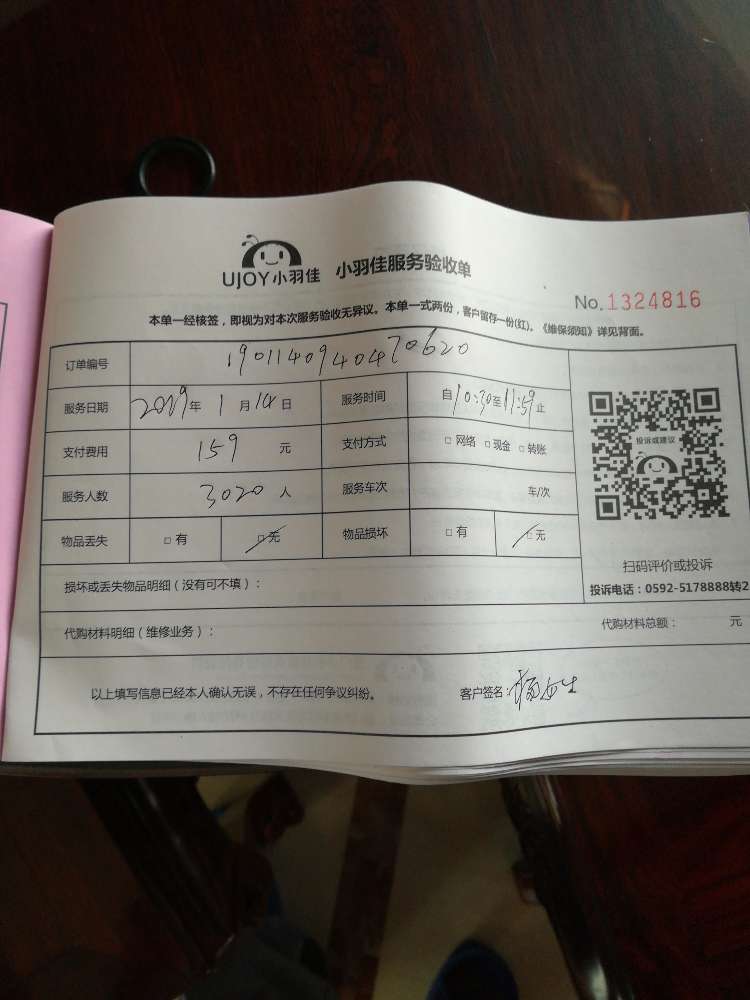 UJOY小羽佳 小羽佳服务验收单
No.1324816
本单一经核签，即视为对本次服务验收无异议。本单一式两份，客户留存一份(红)。《维保须知》详见背面。
订单编号 1901140940470620
服务日期 2019年 1 月 14 日 服务时间 自 10:30 至 11:59 止
支付费用 159 元 支付方式 □ 网络 □ 现金 □ 转账
服务人数 3020 人 服务车次 车/次
物品丢失 □ 有 □ 无 物品损坏 □ 有 □ 无
投诉或建议
扫码评价或投诉
投诉电话：0592-5178888转2
损坏或丢失物品明细（没有可不填）：
代购材料明细（维修业务）： 代购材料总额： 元
以上填写信息已经本人确认无误，不存在任何争议纠纷。 客户签名：